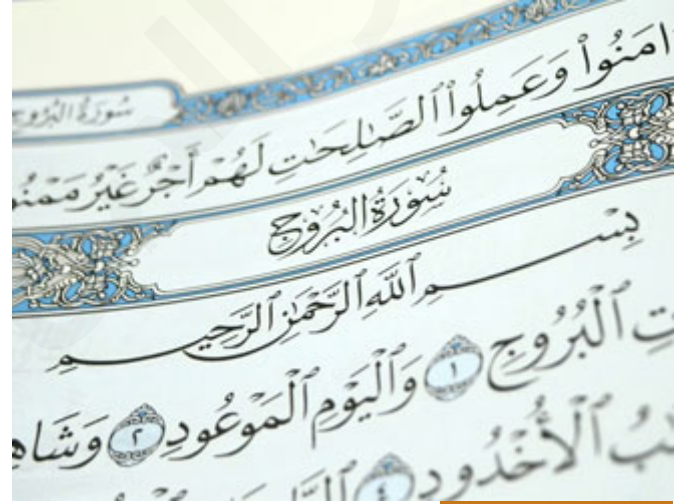 سُورَةُ البُرُوجِ
ءَامَنُوا۟ وَعَمِلُوا۟ ٱلصَّـٰلِحَـٰتِ لَهُمْ أَجْرٌ غَيْرُ مَمْنُو
سُورَةُ البُرُوجِ
بِسْمِ ٱللَّهِ ٱلرَّحْمَـٰنِ ٱلرَّحِيمِ
تِ ٱلْبُرُوجِ ١ وَٱلْيَوْمِ ٱلْمَوْعُودِ ٢ وَشَاهِ
بُ ٱلْأُخْدُودِ ٤